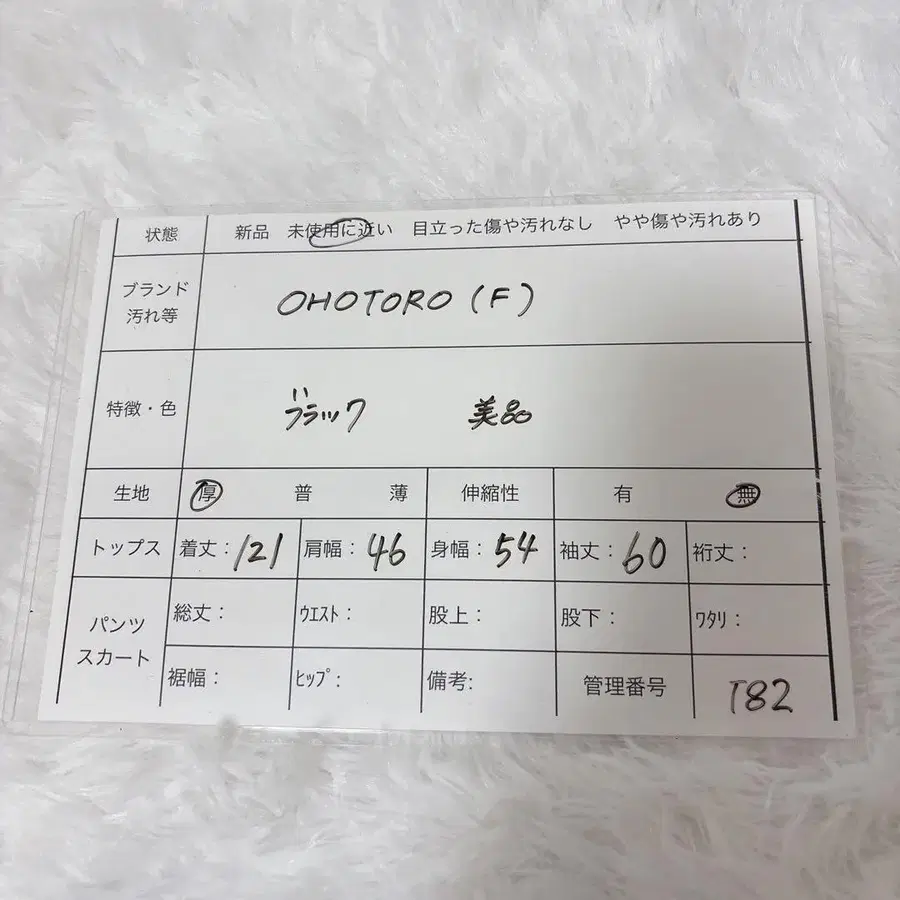 状態 新品 未使用に近い 目立った傷や汚れなし やや傷や汚れあり
ブランド 汚れ等 OHOTORO (F)
特徴・色 ブラック 美品
生地 厚 普 薄 伸縮性 有 無
トップス 着丈：121 肩幅：46 身幅：54 袖丈：60 裄丈：
パンツ スカート 総丈： ウエスト： 股上： 股下： ワタリ：
裾幅： ヒップ： 備考: 管理番号 T82